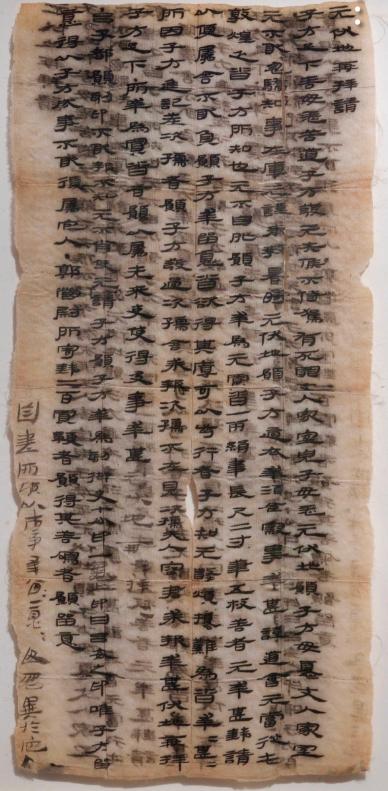 元伏地再拜請
子方足下善毋恙苦道子方發元失候不侍駕有死罪丈人家室兒子毋恙元伏地願子方毋憂丈人家室
元不敢忽驕知事在庫元謹奉教暑時元伏地願子方適衣幸酒食察事幸甚謹道會元當從屯
敦煌乏沓子方所知也元不自外願子方幸為元買沓一兩絹韋長尺二寸筆五枚善者元幸甚錢請
以便屬舍不敢負願子方幸留意沓欲得其厚可以步行者子方知元數煩擾難為沓幸甚幸甚
所因子方進記差次孺者願子方發過次孺舍求報次孺不在見次孺夫人容君求報幸甚伏地再拜
子方足下·所幸為買沓者願以屬先來吏使得及事幸甚元伏地再拜再拜
·呂子都願刻印不敢報不知元不肖使元請子方願子方幸為刻御史七分印一龜上印曰呂安之印唯子方留
意得以子方成事不敢復屬它人·郭營尉所寄錢二百買鞭者願得其善鳴者願留意
自書所願以市事幸留意留意毋忽異於它人